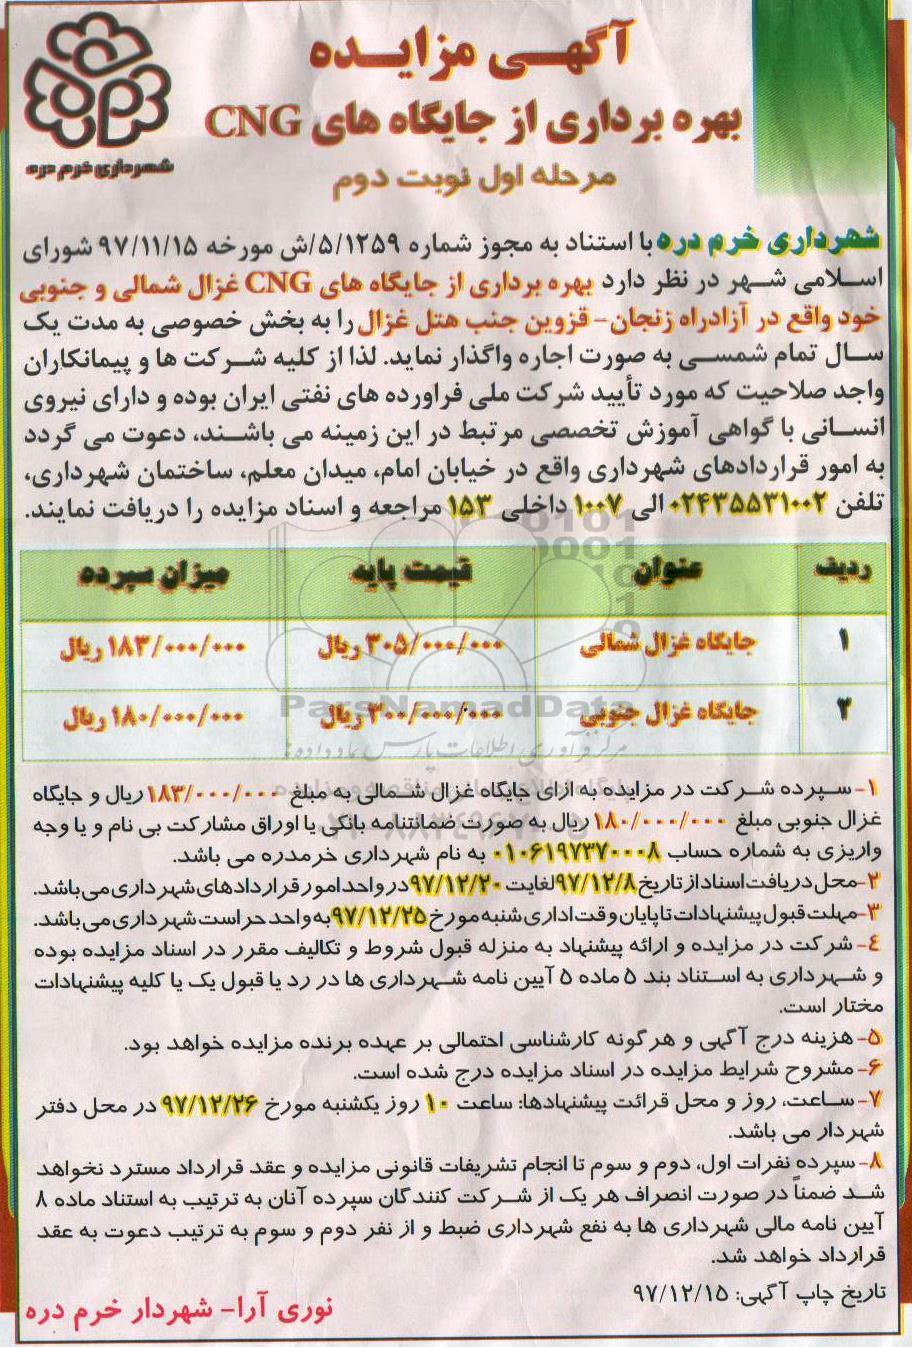 آگهی مزایده
بهره برداری از جایگاه های CNG
مرحله اول نوبت دوم
شهرداری خرم دره
شهرداری خرم دره با استناد به مجوز شماره ۵/۱۲۵۹/ش مورخه ۹۷/۱۱/۱۵ شورای
اسلامی شهر در نظر دارد بهره برداری از جایگاه های CNG غزال شمالی و جنوبی
خود واقع در آزادراه زنجان- قزوین جنب هتل غزال را به بخش خصوصی به مدت یک
سال تمام شمسی به صورت اجاره واگذار نماید. لذا از کلیه شرکت ها و پیمانکاران
واجد صلاحیت که مورد تأیید شرکت ملی فراورده های نفتی ایران بوده و دارای نیروی
انسانی با گواهی آموزش تخصصی مرتبط در این زمینه می باشند، دعوت می گردد
به امور قراردادهای شهرداری واقع در خیابان امام، میدان معلم، ساختمان شهرداری،
تلفن ۰۲۴۳۵۵۳۱۰۰۲ الی ۱۰۰۷ داخلی ۱۵۳ مراجعه و اسناد مزایده را دریافت نمایند.
ردیف عنوان قیمت پایه میزان سپرده
۱ جایگاه غزال شمالی ۳۰۵/۰۰۰/۰۰۰ ریال ۱۸۳/۰۰۰/۰۰۰ ریال
۲ جایگاه غزال جنوبی ۳۰۰/۰۰۰/۰۰۰ ریال ۱۸۰/۰۰۰/۰۰۰ ریال
ParsNamadData
مرکز فرآوری اطلاعات پارس نماد داده ها
۱- سپرده شرکت در مزایده به ازای جایگاه غزال شمالی به مبلغ ۱۸۳/۰۰۰/۰۰۰ ریال و جایگاه
غزال جنوبی مبلغ ۱۸۰/۰۰۰/۰۰۰ ریال به صورت ضمانتنامه بانکی یا اوراق مشارکت بی نام و یا وجه
واریزی به شماره حساب ۰۱۰۶۱۹۷۳۷۰۰۰۸ به نام شهرداری خرمدره می باشد.
۲- محل دریافت اسناد از تاریخ ۹۷/۱۲/۸ لغایت ۹۷/۱۲/۲۰ در واحد امور قراردادهای شهرداری می باشد.
۳- مهلت قبول پیشنهادات تا پایان وقت اداری شنبه مورخ ۹۷/۱۲/۲۵ به واحد حراست شهرداری می باشد.
٤- شرکت در مزایده و ارائه پیشنهاد به منزله قبول شروط و تکالیف مقرر در اسناد مزایده بوده
و شهرداری به استناد بند ۵ ماده ۵ آیین نامه شهرداری ها در رد یا قبول یک یا کلیه پیشنهادات
مختار است.
۵- هزینه درج آگهی و هرگونه کارشناسی احتمالی بر عهده برنده مزایده خواهد بود.
۶- مشروح شرایط مزایده در اسناد مزایده درج شده است.
۷- ساعت، روز و محل قرائت پیشنهادها: ساعت ۱۰ روز یکشنبه مورخ ۹۷/۱۲/۲۶ در محل دفتر
شهردار می باشد.
۸- سپرده نفرات اول، دوم و سوم تا انجام تشریفات قانونی مزایده و عقد قرارداد مسترد نخواهد
شد ضمناً در صورت انصراف هر یک از شرکت کنندگان سپرده آنان به ترتیب به استناد ماده ۸
آیین نامه مالی شهرداری ها به نفع شهرداری ضبط و از نفر دوم و سوم به ترتیب دعوت به عقد
قرارداد خواهد شد.
تاریخ چاپ آگهی: ۹۷/۱۲/۱۵
نوری آرا- شهردار خرم دره